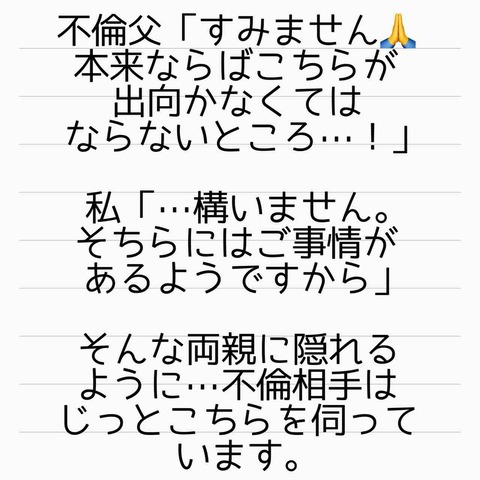 不倫父「すみません🙏
本来ならばこちらが
出向かなくては
ならないところ…！」
私「…構いません。
そちらにはご事情が
あるようですから」
そんな両親に隠れる
ように…不倫相手は
じっとこちらを伺って
います。